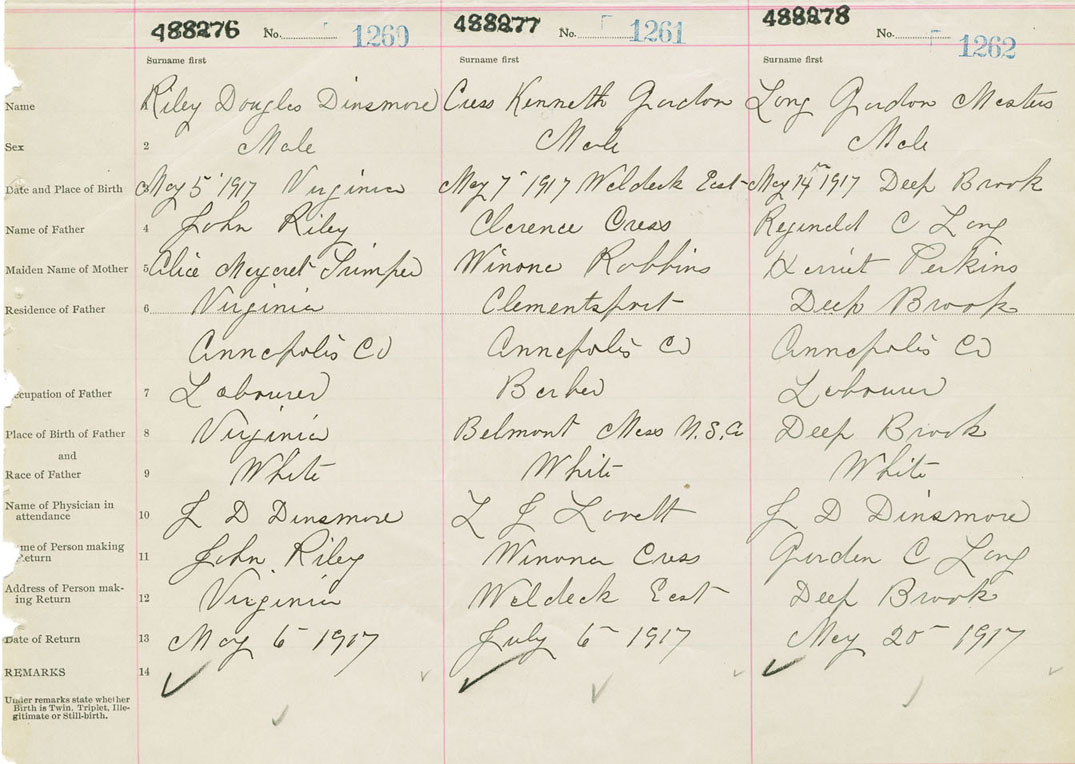 488276 No. 1260 488277 No. 1261 488278 No. 1262
Surname first Surname first Surname first
Name Riley Douglas Dinsmore Cress Kenneth Gordon Long Gordon Masters
Sex 2 Male Male Male
Date and Place of Birth 3 May 5 1917 Virginia May 7 1917 Waldeck East May 14 1917 Deep Brook
Name of Father 4 John Riley Clarence Cress Reginald C Long
Maiden Name of Mother 5 Alice Margaret Trimper Winona Robbins Harriet Perkins
Residence of Father 6 Virginia Clementsport Deep Brook
Annapolis Co Annapolis Co Annapolis Co
ccupation of Father 7 Labourer Barber Labourer
Place of Birth of Father 8 Virginia Belmont Mass U.S.A Deep Brook
and
Race of Father 9 White White White
Name of Physician in
attendance 10 J D Dinsmore L J Lovett J D Dinsmore
me of Person making
Return 11 John Riley Winona Cress Gordon C Long
Address of Person mak-
ing Return 12 Virginia Waldeck East Deep Brook
Date of Return 13 May 6 1917 July 6 1917 May 20 1917
REMARKS 14
Under remarks state whether
Birth is Twin, Triplet, Ille-
gitimate or Still-birth.